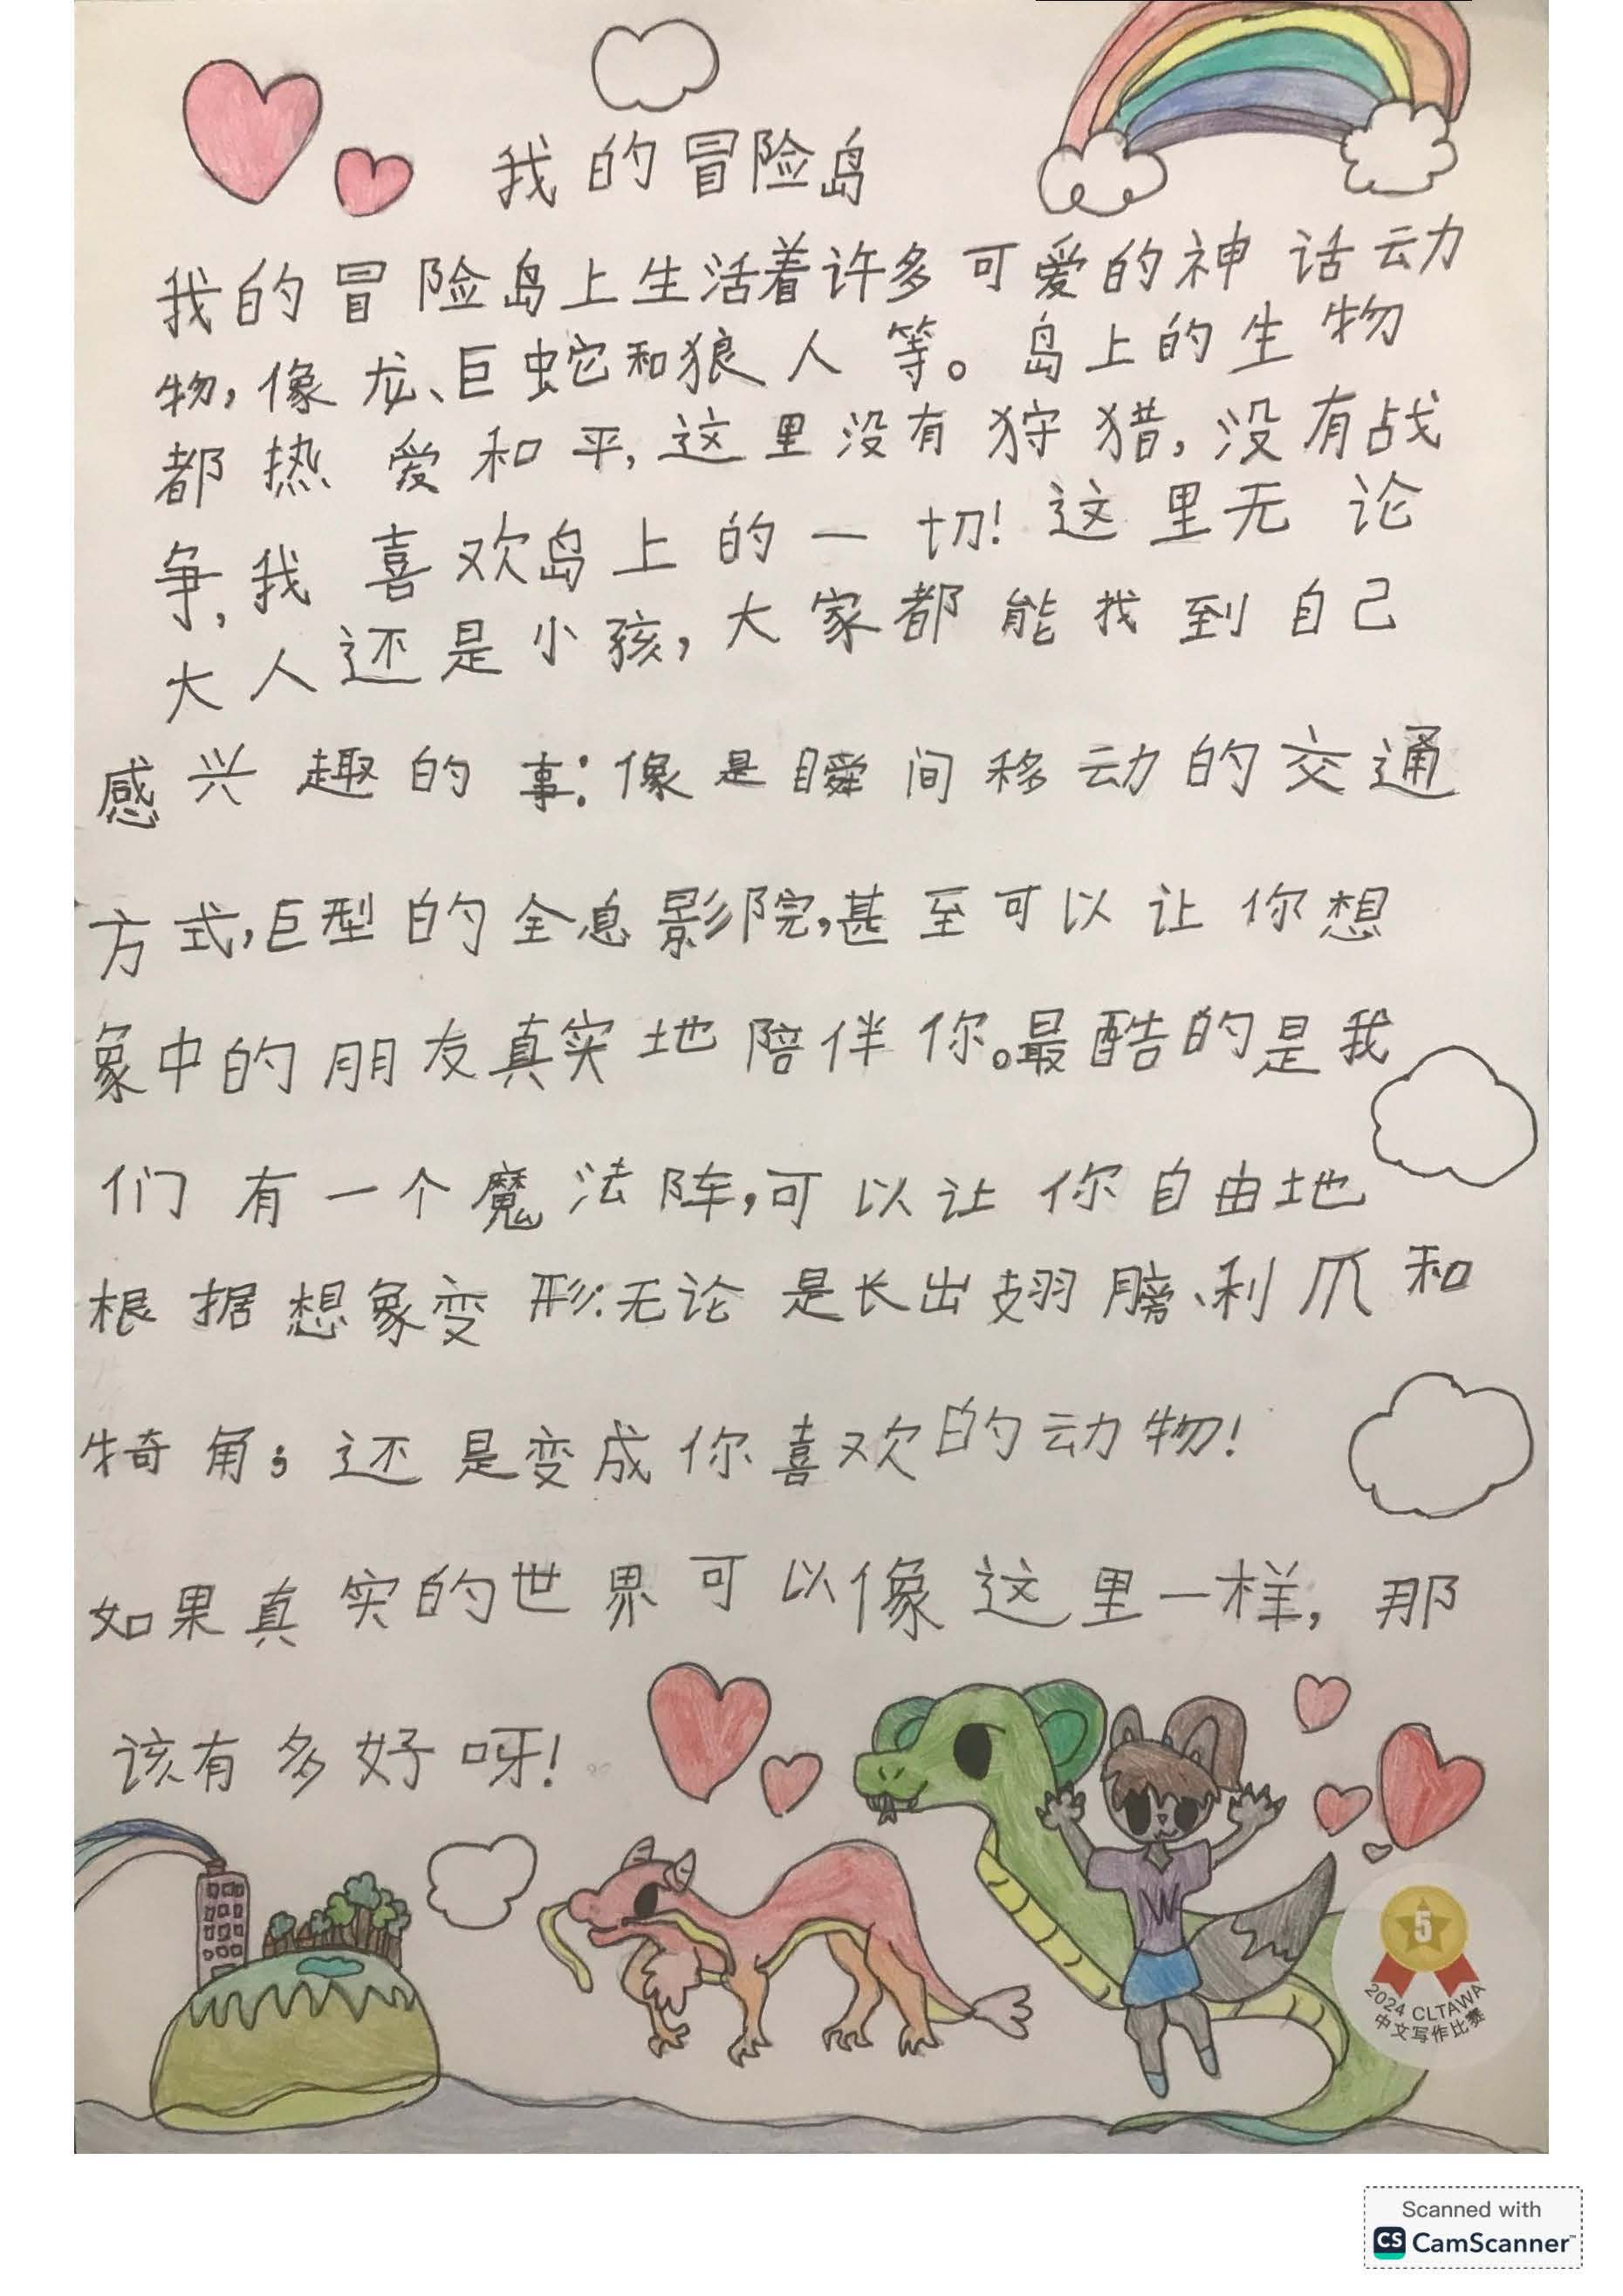 我的冒险岛
我的冒险岛上生活着许多可爱的神话动
物，像龙、巨蛇和狼人等。岛上的生物
都热爱和平，这里没有狩猎，没有战
争，我喜欢岛上的一切！这里无论
大人还是小孩，大家都能找到自己
感兴趣的事：像是瞬间移动的交通
方式，巨型的全息影院，甚至可以让你想
象中的朋友真实地陪伴你。最酷的是我
们有一个魔法阵，可以让你自由地
根据想象变形：无论是长出翅膀、利爪和
犄角；还是变成你喜欢的动物！
如果真实的世界可以像这里一样，那
该有多好呀！
5
2024 CLTAWA
中文写作比赛
Scanned with
CS CamScanner™